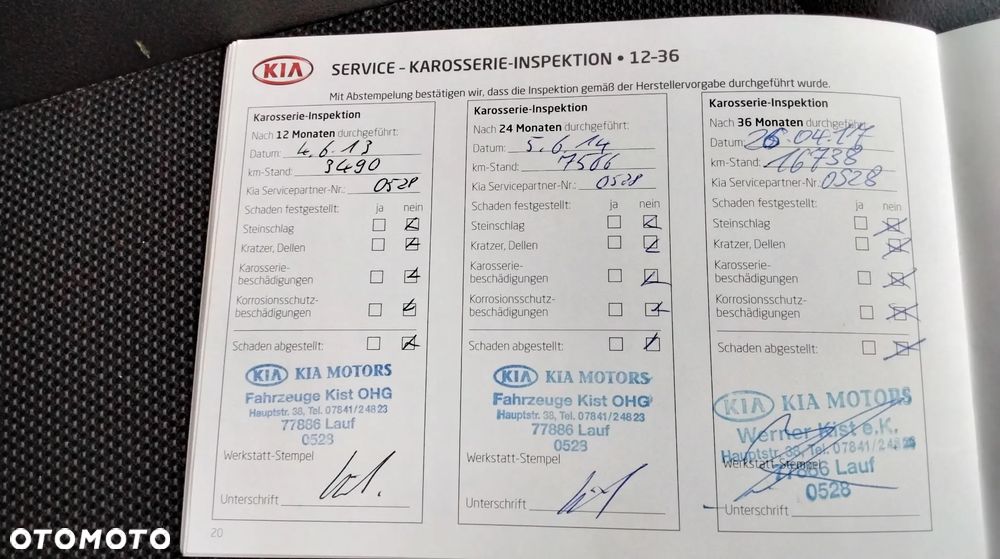 KIA
SERVICE – KAROSSERIE-INSPEKTION • 12–36
Mit Abstempelung bestätigen wir, dass die Inspektion gemäß der Herstellervorgabe durchgeführt wurde.
Karosserie-Inspektion
Nach 12 Monaten durchgeführt:
Datum: 4.6.13
km-Stand: 3490
Kia Servicepartner-Nr.: 0528
Schaden festgestellt: ja nein
Steinschlag
Kratzer, Dellen
Karosserie-
beschädigungen
Korrosionsschutz-
beschädigungen
Schaden abgestellt:
KIA KIA MOTORS
Fahrzeuge Kist OHG
Hauptstr. 38, Tel. 07841/24823
77886 Lauf
0528
Werkstatt-Stempel
Unterschrift
20
Karosserie-Inspektion
Nach 24 Monaten durchgeführt:
Datum: 5.6.14
km-Stand: 7566
Kia Servicepartner-Nr.: 0528
Schaden festgestellt: ja nein
Steinschlag
Kratzer, Dellen
Karosserie-
beschädigungen
Korrosionsschutz-
beschädigungen
Schaden abgestellt:
KIA KIA MOTORS
Fahrzeuge Kist OHG
Hauptstr. 38, Tel. 07841/24823
77886 Lauf
0528
Werkstatt-Stempel
Unterschrift
Karosserie-Inspektion
Nach 36 Monaten durchgeführt:
Datum: 26.04.17
km-Stand: 16738
Kia Servicepartner-Nr.: 0528
Schaden festgestellt: ja nein
Steinschlag
Kratzer, Dellen
Karosserie-
beschädigungen
Korrosionsschutz-
beschädigungen
Schaden abgestellt:
KIA KIA MOTORS
Werner Kist e.K.
Hauptstr. 38, Tel. 07841/24823
Werkstatt-Stempel
77886 Lauf
0528
Unterschrift
OTOMOTO